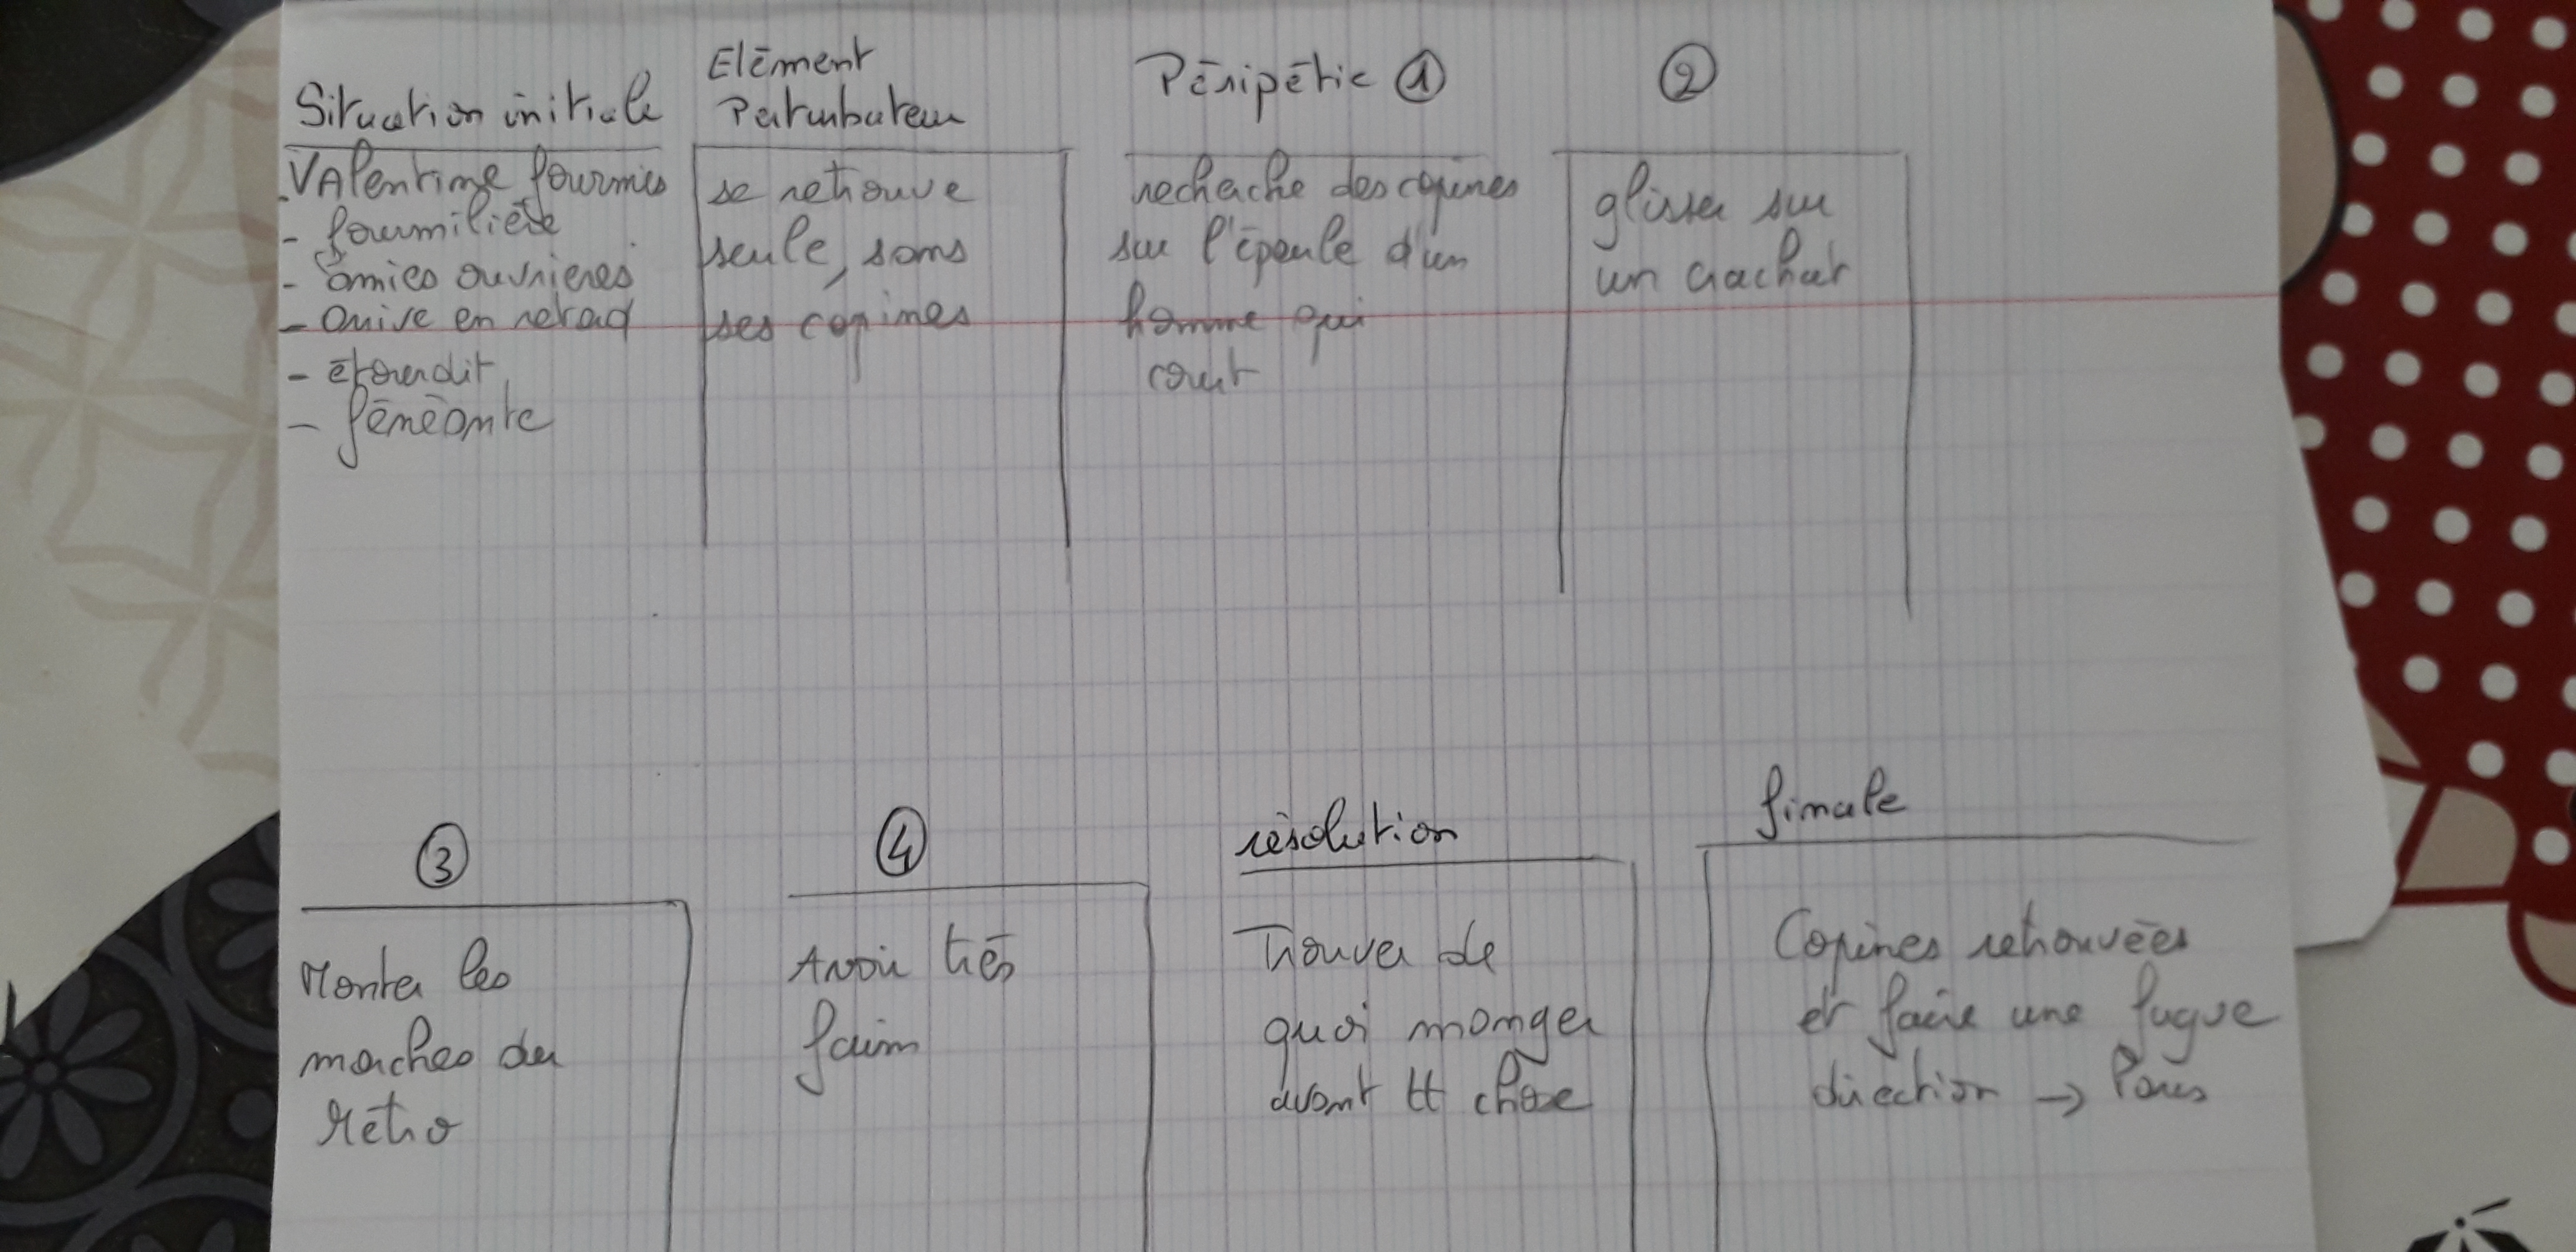 Situation initiale
VAlentine fourmies
- fourmilière
- amies ouvrieres
- arive en retad
- étourdit
- fénéante
Elément
Perturbateur
se retrouve
seule, sans
ses copines
Péripétie ①
recherche des copines
sur l'épaule d'un
homme qui
court
②
glisser sur
un crachat
③
Monter les
marches du
Métro
④
Avoir très
faim
résolution
Trouver de
quoi manger
avant tt chose
finale
Copines retrouvées
et faire une fugue
direction → Paris